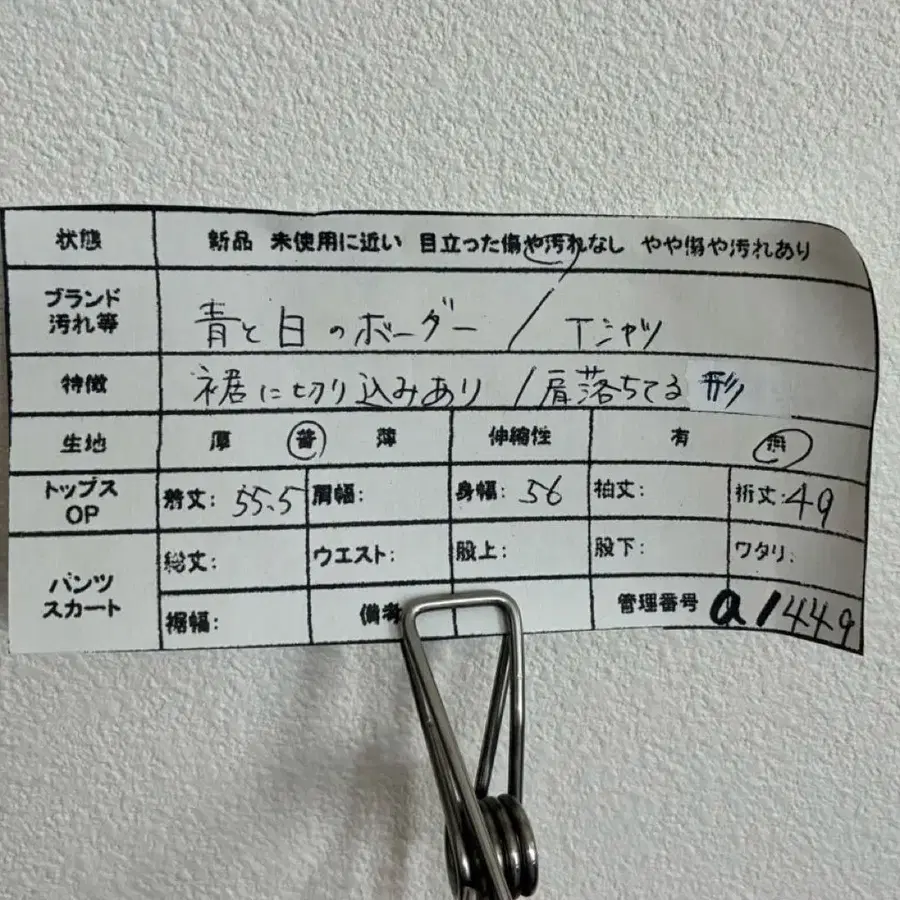 状態 新品 未使用に近い 目立った傷や汚れなし やや傷や汚れあり
ブランド
汚れ等 青と白のボーダー / Tシャツ
特徴 裾に切り込みあり / 肩落ちてる形
生地 厚 普 薄 伸縮性 有 無
トップス
OP 着丈: 55.5 肩幅: 身幅: 56 袖丈: 裄丈: 49
パンツ
スカート 総丈: ウエスト: 股上: 股下: ワタリ:
裾幅: 備考 管理番号 a1449